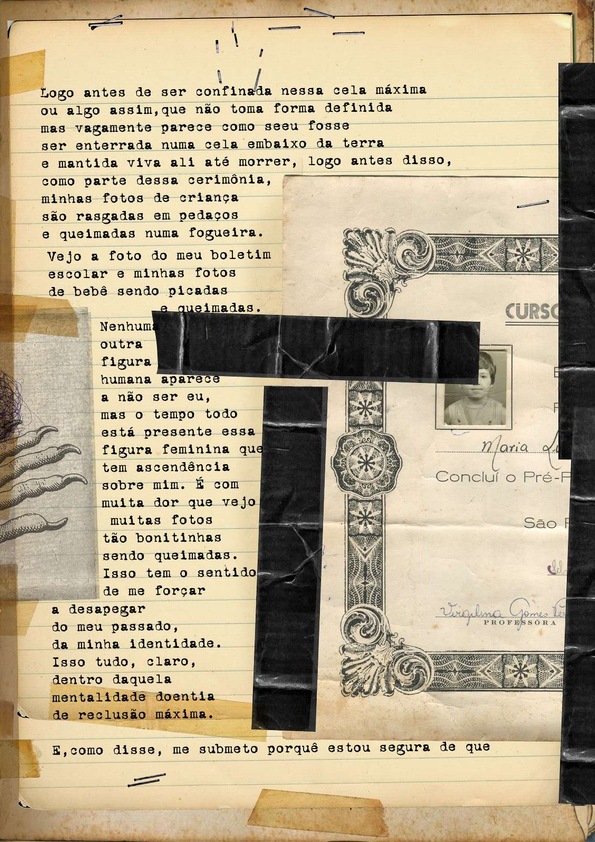 Logo antes de ser confinada nessa cela máxima
ou algo assim,que não toma forma definida
mas vagamente parece como seeu fosse
ser enterrada numa cela embaixo da terra
e mantida viva ali até morrer, logo antes disso,
como parte dessa cerimônia,
minhas fotos de criança
são rasgadas em pedaços
e queimadas numa fogueira.
Vejo a foto do meu boletim
escolar e minhas fotos
de bebê sendo picadas
e queimadas.
Nenhuma
outra
figura
humana aparece
a não ser eu,
mas o tempo todo
está presente essa
figura feminina que
tem ascendência
sobre mim. É com
muita dor que vejo
muitas fotos
tão bonitinhas
sendo queimadas.
Isso tem o sentido
de me forçar
a desapegar
do meu passado,
da minha identidade.
Isso tudo, claro,
dentro daquela
mentalidade doentia
de reclusão máxima.
E,como disse, me submeto porquê estou segura de que
CURSO
Maria
Concluí o Pré-P
São
Virgilina Gomes
PROFESSÔRA